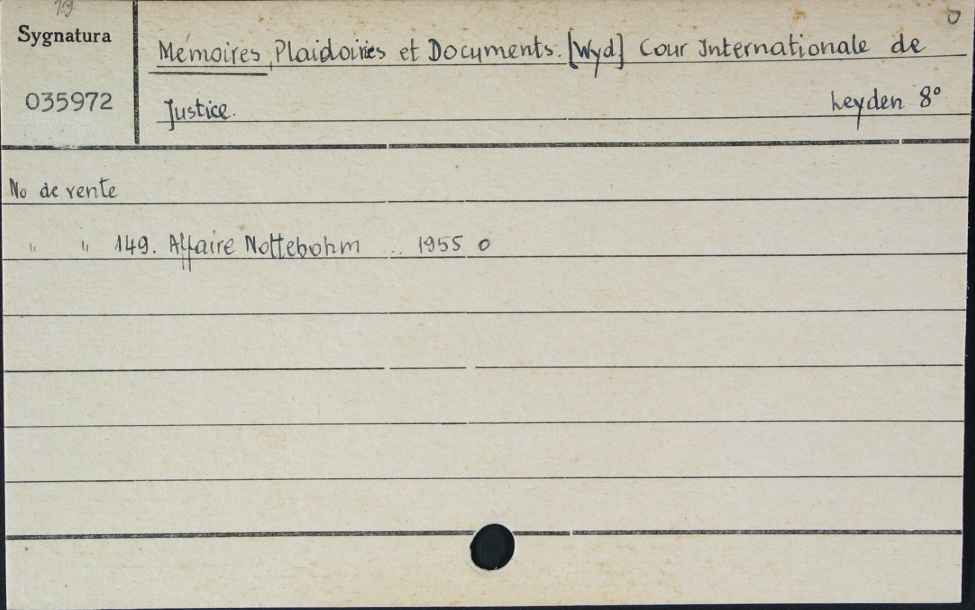 Sygnatura
035972
Mémoires, Plaidoiries et Documents. [Wyd] Cour Internationale de
Justice. Leyden 8°
No de vente
" " 149. Affaire Nottebohm ... 1955 0